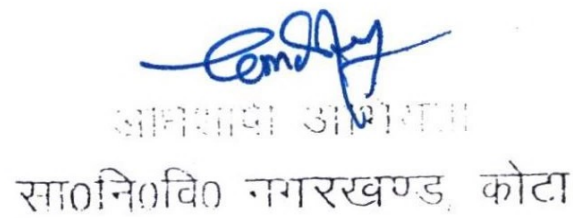 अधिशाषी अभियन्ता
सा0नि0वि0 नगरखण्ड, कोटा